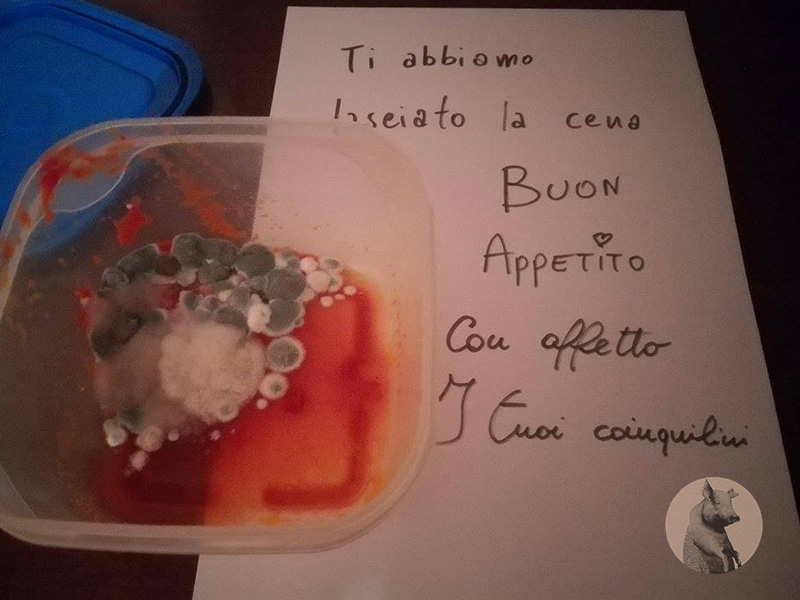 Ti abbiamo
lasciato la cena
BUON
APPETITO
Con affetto
I tuoi coinquilini